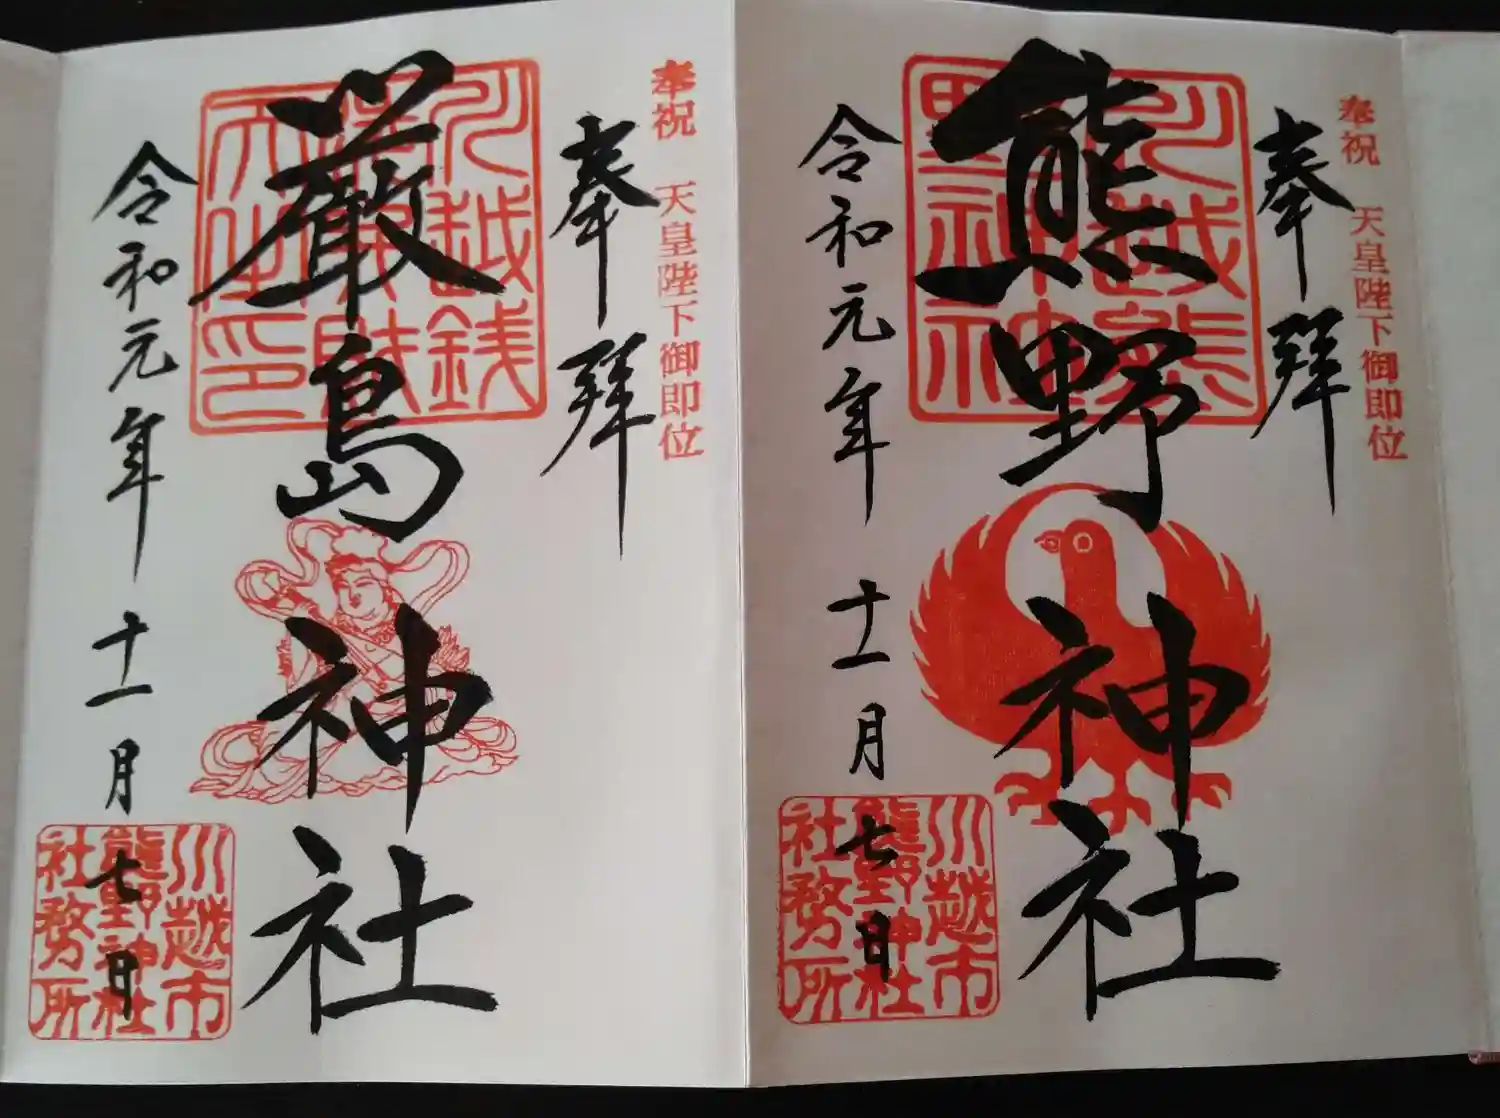 奉祝 天皇陛下御即位
奉拜
熊野神社
川越熊
野神社
令和元年十一月七日
川越市
熊野神社
社務所
奉祝 天皇陛下御即位
奉拜
厳島神社
川越銭
洗弁財
天之印
令和元年十一月七日
川越市
熊野神社
社務所